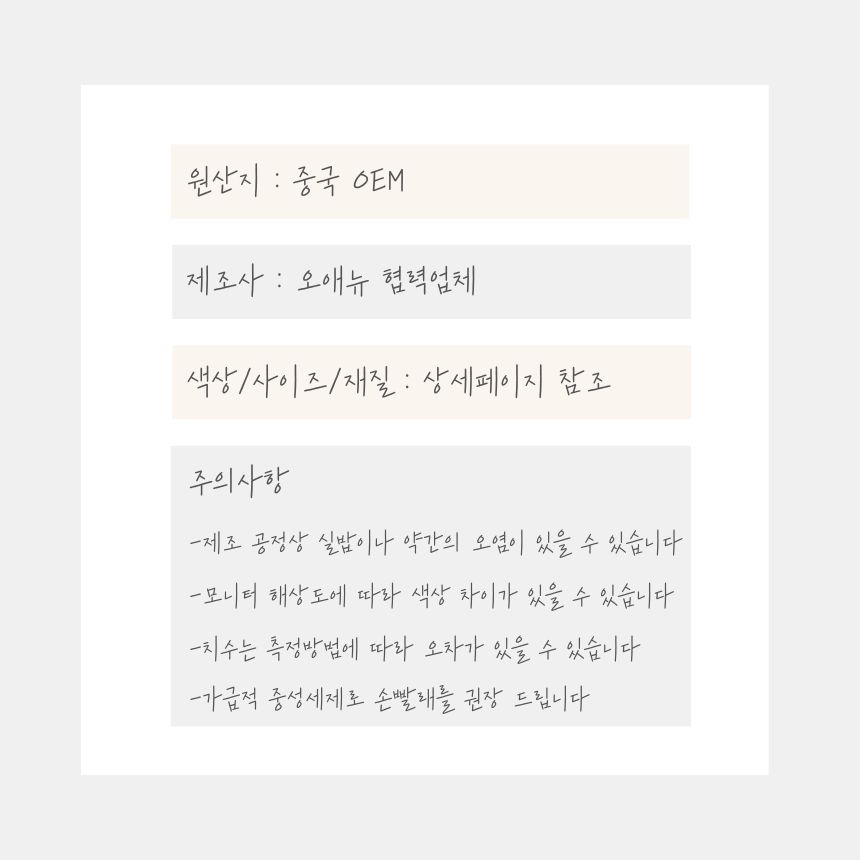 원산지 : 중국 OEM
제조사 : 오애뉴 협력업체
색상/사이즈/재질 : 상세페이지 참조
주의사항
-제조 공정상 실밥이나 약간의 오염이 있을 수 있습니다
-모니터 해상도에 따라 색상 차이가 있을 수 있습니다
-치수는 측정방법에 따라 오차가 있을 수 있습니다
-가급적 중성세제로 손빨래를 권장 드립니다